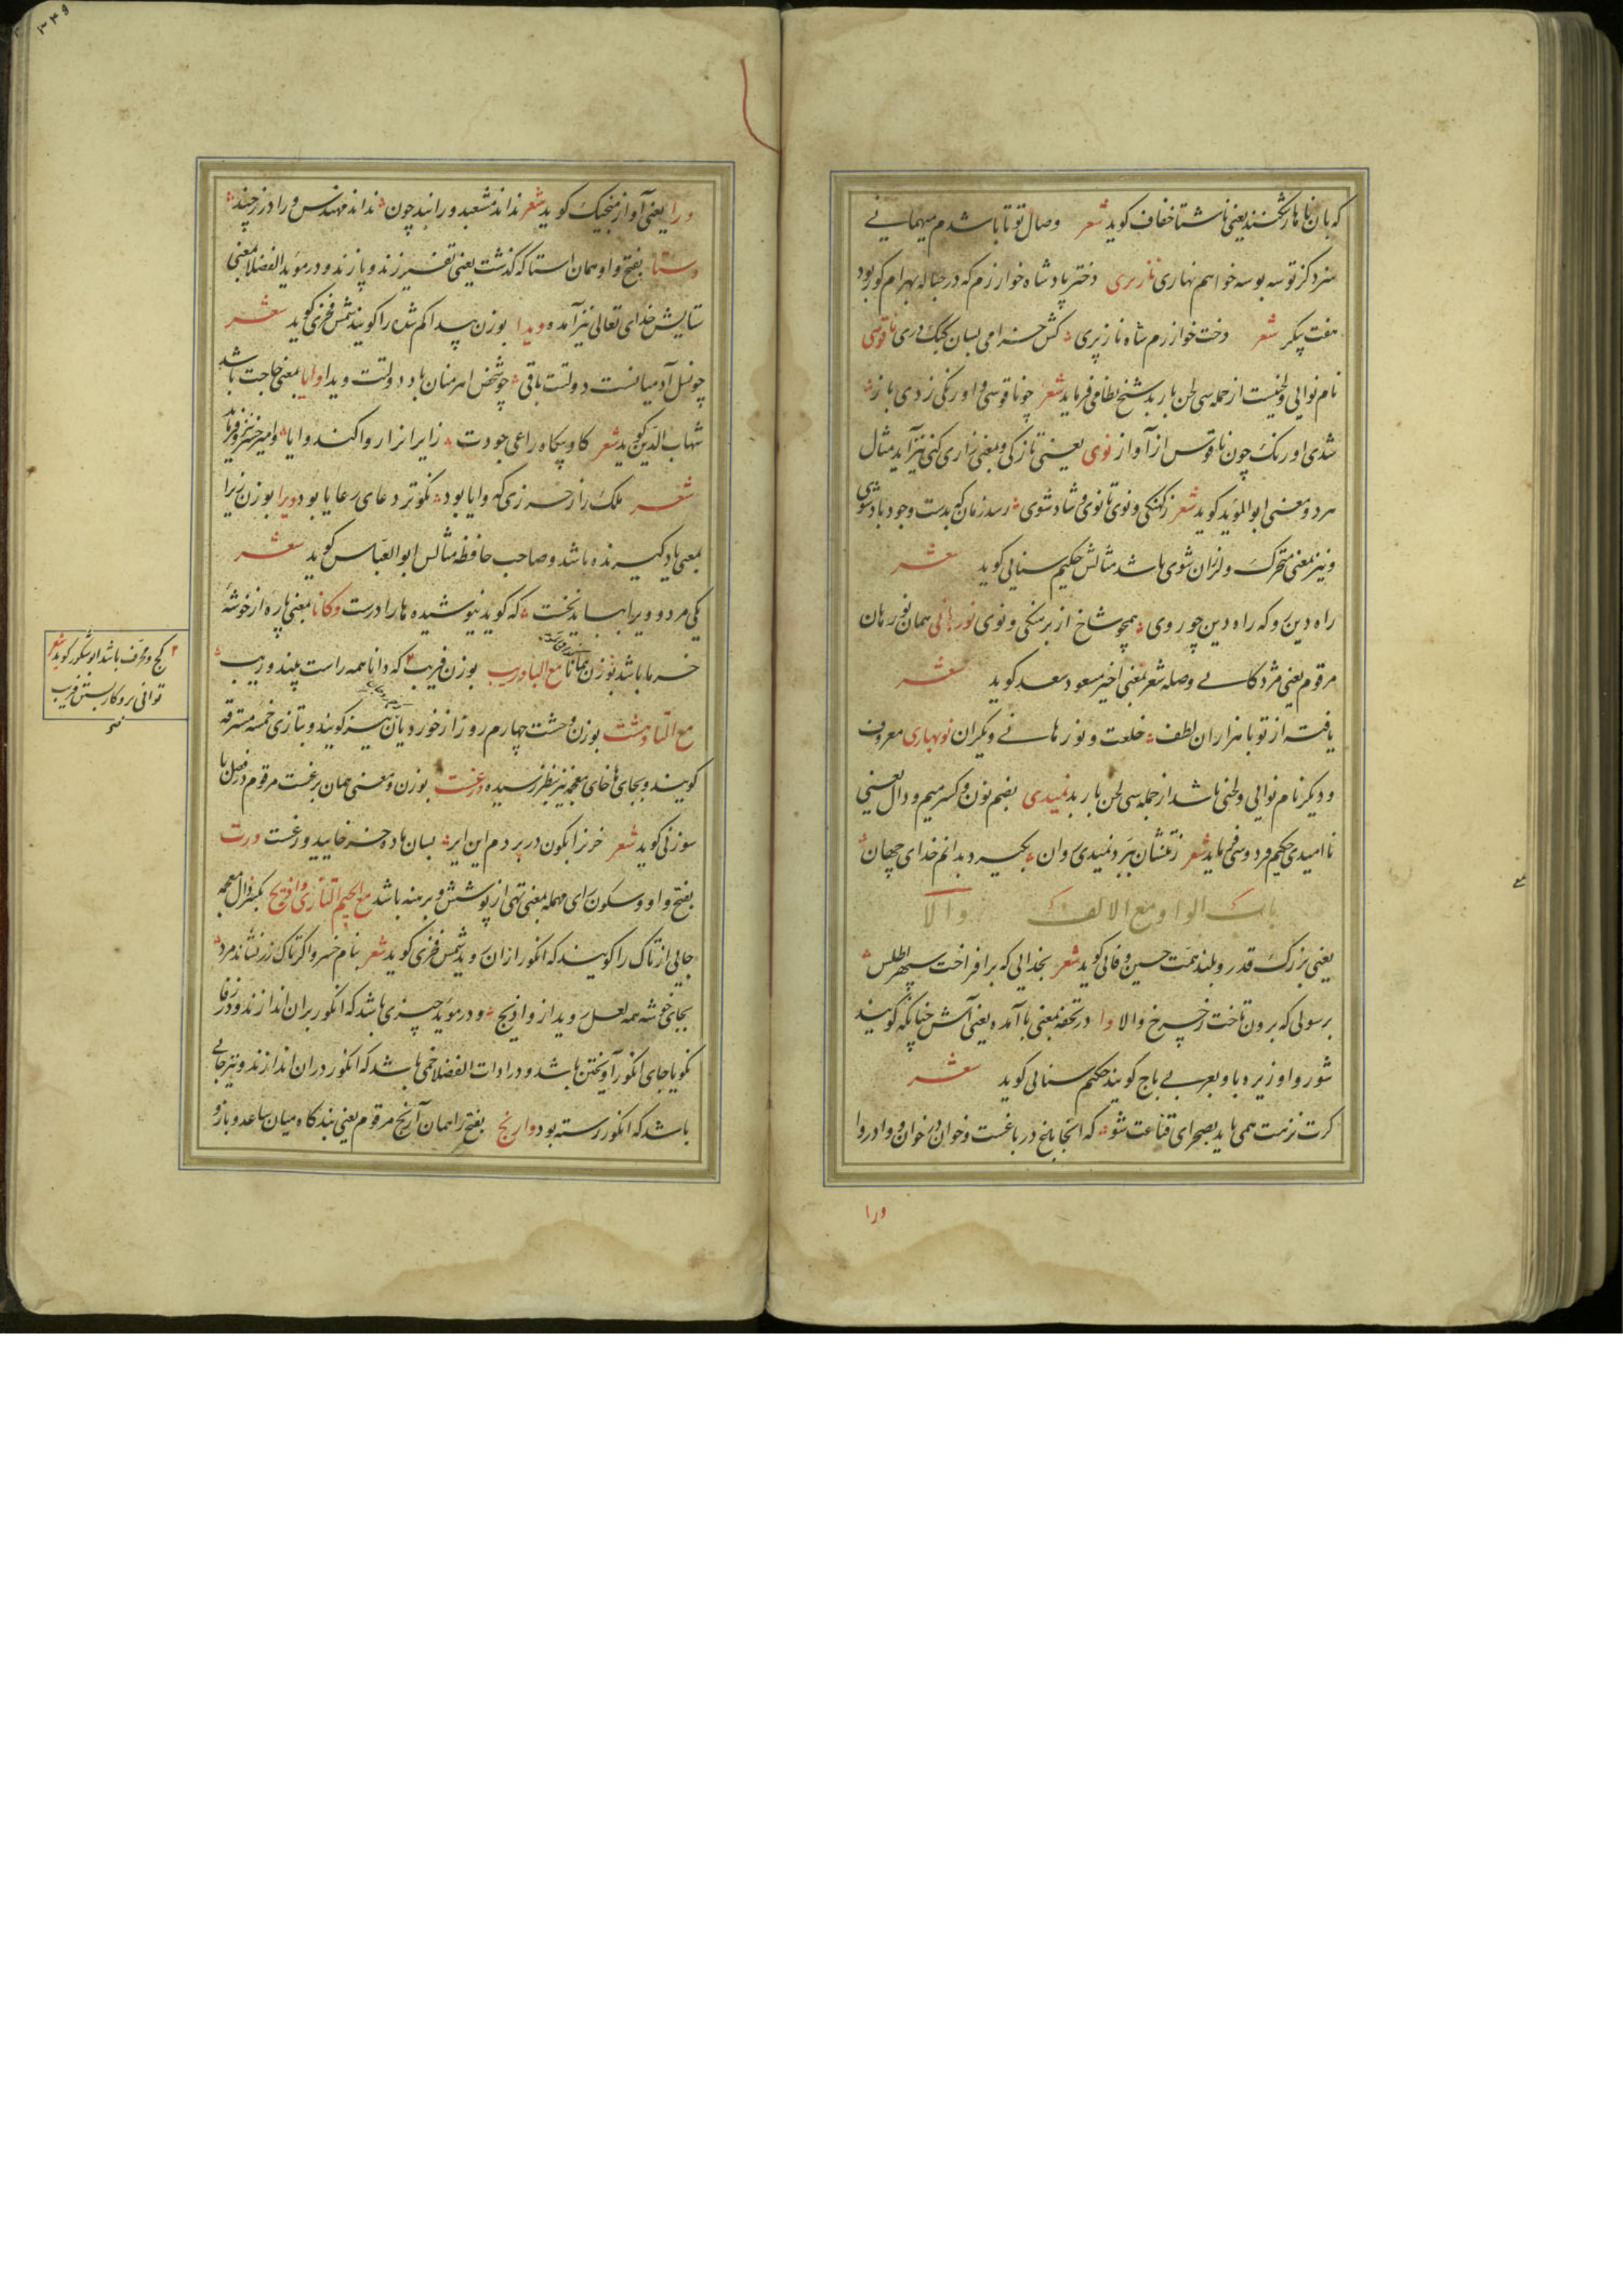 که بان ناهار شکنند یعنی ناشتا خفاف کوید شعر وصال تو تا باشدم میهمانی
سزد کز تو سه بوسه خواهم نهاری نازپری دختر پادشاه خوارزم که در حباله بهرام کور بود
هفت پیکر شعر دخت خوارزم شاه نازپری کش خرامی بسان کبک دری ناقوسی
نام نوایی و لحنیست از جمله سی لحن باربد شیخ نظامی فرماید شعر چو ناقوسی و اورنکی زدی باز
شدی اورنک چون ناقوس از آواز نوی یعنی تازکی و بمعنی زاری کنی نیز آید مثال
هر دو معنی ابو المؤید کوید شعر ز کهنکی و نوی تا نوی و شاد شوی رسد زمان که بدست وجود باد شوی
و نیز بمعنی متحرک و لرزان شوی باشد مثالش حکیم سنایی کوید شعر
راه دین رو که راه دین چو روی همچو شاخ از برهنکی و نوی نورهانی همان نورهان
مرقوم یعنی مژدکانی و صله شعر بمعنی اخیر مسعود سعد کوید شعر
یافته از تو با هزاران لطف خلعت و نورهانی دیکران نوبهاری معروف
و دیکر نام نوایی و لحنی باشد از جمله سی لحن باربد نمیدی بضم نون و کسر میم و دال یعنی
ناامیدی حکیم فردوسی فرماید شعر ز تنشان ببرد نمیدی روان بکیرد بدانم خدای جهان
باب الواو مع الالف والا
یعنی بزرک قدر و بلند همت حسین وفایی کوید شعر بخدایی که برافراخت سپهر اطلس
برسولی که برون تاخت ز چرخ والا وا در تحفه بمعنی با آمده یعنی آش چنانکه کویند
شوروا و زیره با و بعربی باج کویند حکیم سنایی کوید شعر
کرت نزهت همی باید بصحرای قناعت شو که آنجا باغ در باغست و خوان در خوان و وا در وا
ورا
ورا یعنی آواز منجیک کوید شعر نداند مشعبد ورا بند چون نداند مهندس ورا درز چند
وستا بفتح واو همان استا که کذشت یعنی تفسیر زند و پازند و در مؤید الفضلا بمعنی
ستایش خدای تعالی نیز آمده ویدا بوزن پیدا کم شده را کویند شمس فخری کوید شعر
چو نسل آدمیانست دولتت باقی چو شخص اهرمنان باد دولتت ویدا وایا بمعنی حاجت باشد
شهاب الدین کوید شعر کاو بیکاه راعی جودت زایران را روا کند وایا و امیر خسرو نیز فرماید
شعر ملک را ز حرزی که وایا بود نکوتر دعای رعایا بود ویرا بوزن زیرا
بمعنی یاد کیرنده باشد و صاحب حافظه مثالش ابو العباس کوید شعر
یکی مرد و ویرا بباید نخست که کوید نیوشیده ها را درست وکانا بمعنی پاره از خوشه
خرما باشد بوزن همانا مع البا وریب بوزن فریب که دانا همه راست پیند وریب
۲ کج و محرف باشد ابو شکور کوید شعر
توانی برو کار بستن فریب
مع التا وهشت بوزن وحشت چهارم روز از خوردیان نیز کویند و بتازی خمسه مسترقه
کویند و بجای ها خای معجمه نیز بنظر رسیده ورغست بوزن و معنی همان برغست مرقوم در فصل با
سوزنی کوید شعر بسان ماده خر خایید ورغست ورت
بفتح واو و سکون رای مهمله بمعنی تهی از پوشش و برهنه باشد مع الجیم التازی واذیج بکسر ذال معجمه
جایی از تاک را کویند که انکور از ان روید شمس فخری کوید شعر بنام خسرو اکر تاک زر نشاند مرد
بجای خوشه همه لعل روید از واذیج و در مؤید چیزی باشد که انکور بران اندازند و در زفا
نکویا جای انکور آویختن باشد و در ادات الفضلا خمی باشد که انکور دران اندازند و نیز جایی
باشد که انکور رسته بود وارنج بفتح را همان آرنج مرقوم یعنی بندکاه میان ساعد و بازو